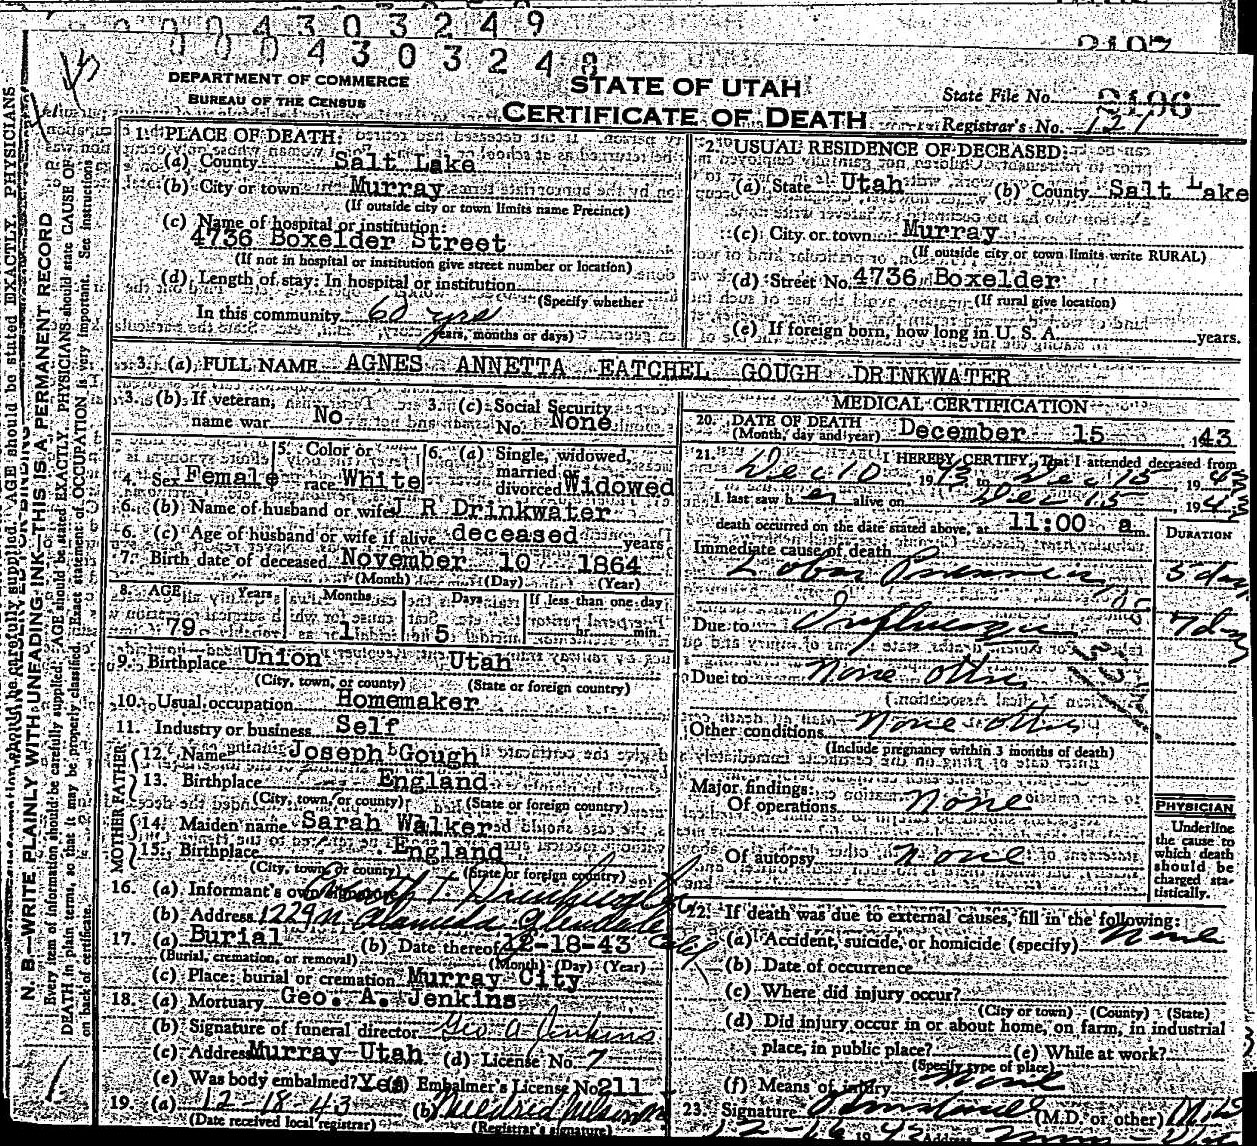 0 0 0 4 3 0 3 2 4 9
0 0 0 4 3 0 3 2 4 8
2107
DEPARTMENT OF COMMERCE
BUREAU OF THE CENSUS
STATE OF UTAH
CERTIFICATE OF DEATH
State File No. 2106
Registrar's No. 121
1. PLACE OF DEATH:
(a) County Salt Lake
(b) City or town Murray
(If outside city or town limits name Precinct)
(c) Name of hospital or institution:
4736 Boxelder Street
(If not in hospital or institution give street number or location)
(d) Length of stay: In hospital or institution
(Specify whether
In this community 60 yrs
years, months or days)
2. USUAL RESIDENCE OF DECEASED:
(a) State Utah (b) County Salt Lake
(c) City or town Murray
(If outside city or town limits write RURAL)
(d) Street No. 4736 Boxelder
(If rural give location)
(e) If foreign born, how long in U. S. A. years.
3. (a) FULL NAME AGNES ANNETTA EATCHEL GOUGH DRINKWATER
3. (b) If veteran, name war No
3. (c) Social Security No. None
4. Sex Female
5. Color or race White
6. (a) Single, widowed, married or divorced Widowed
6. (b) Name of husband or wife J R Drinkwater
6. (c) Age of husband or wife if alive deceased years
7. Birth date of deceased November 10 1864
(Month) (Day) (Year)
8. AGE Years Months Days If less than one day
79 1 5 hr. min.
9. Birthplace Union Utah
(City, town, or county) (State or foreign country)
10. Usual occupation Homemaker
11. Industry or business Self
FATHER
12. Name Joseph Gough
13. Birthplace England
(City, town, or county) (State or foreign country)
MOTHER
14. Maiden name Sarah Walker
15. Birthplace England
(City, town, or county) (State or foreign country)
16. (a) Informant's own signature
(b) Address 1229 N. Alameda Glendale Calif
17. (a) Burial (b) Date thereof 12-18-43
(Burial, cremation, or removal) (Month) (Day) (Year)
(c) Place: burial or cremation Murray City
18. (a) Mortuary Geo. A. Jenkins
(b) Signature of funeral director Geo A Jenkins
(c) Address Murray Utah (d) License No. 7
(e) Was body embalmed? Yes Embalmer's License No. 211
19. (a) 12-18-43 (b) Mildred
(Date received local registrar) (Registrar's signature)
MEDICAL CERTIFICATION
20. DATE OF DEATH
(Month, day and year) December 15 1943
21. I HEREBY CERTIFY, That I attended deceased from
Dec 10 1943 to Dec 15 1943
I last saw her alive on Dec 15 1943
death occurred on the date stated above, at 11:00 a m.
DURATION
Immediate cause of death
Lobar Pneumonia 5 day
Due to Influenza 7 dy
Due to None other
Other conditions None other
(Include pregnancy within 3 months of death)
Major findings:
Of operations None
Of autopsy None
PHYSICIAN
Underline
the cause to
which death
should be
charged sta-
tistically.
22. If death was due to external causes, fill in the following:
(a) Accident, suicide, or homicide (specify) None
(b) Date of occurrence
(c) Where did injury occur?
(City or town) (County) (State)
(d) Did injury occur in or about home, on farm, in industrial
place, in public place? (e) While at work?
(Specify type of place)
(f) Means of injury None
23. Signature (M.D. or other)
N. B.—WRITE PLAINLY WITH UNFADING INK—THIS IS A PERMANENT RECORD
Every item of information should be carefully supplied. AGE should be stated EXACTLY. PHYSICIANS should state CAUSE OF
DEATH in plain terms, so that it may be properly classified. Exact statement of OCCUPATION is very important. See instructions
on back of certificate.